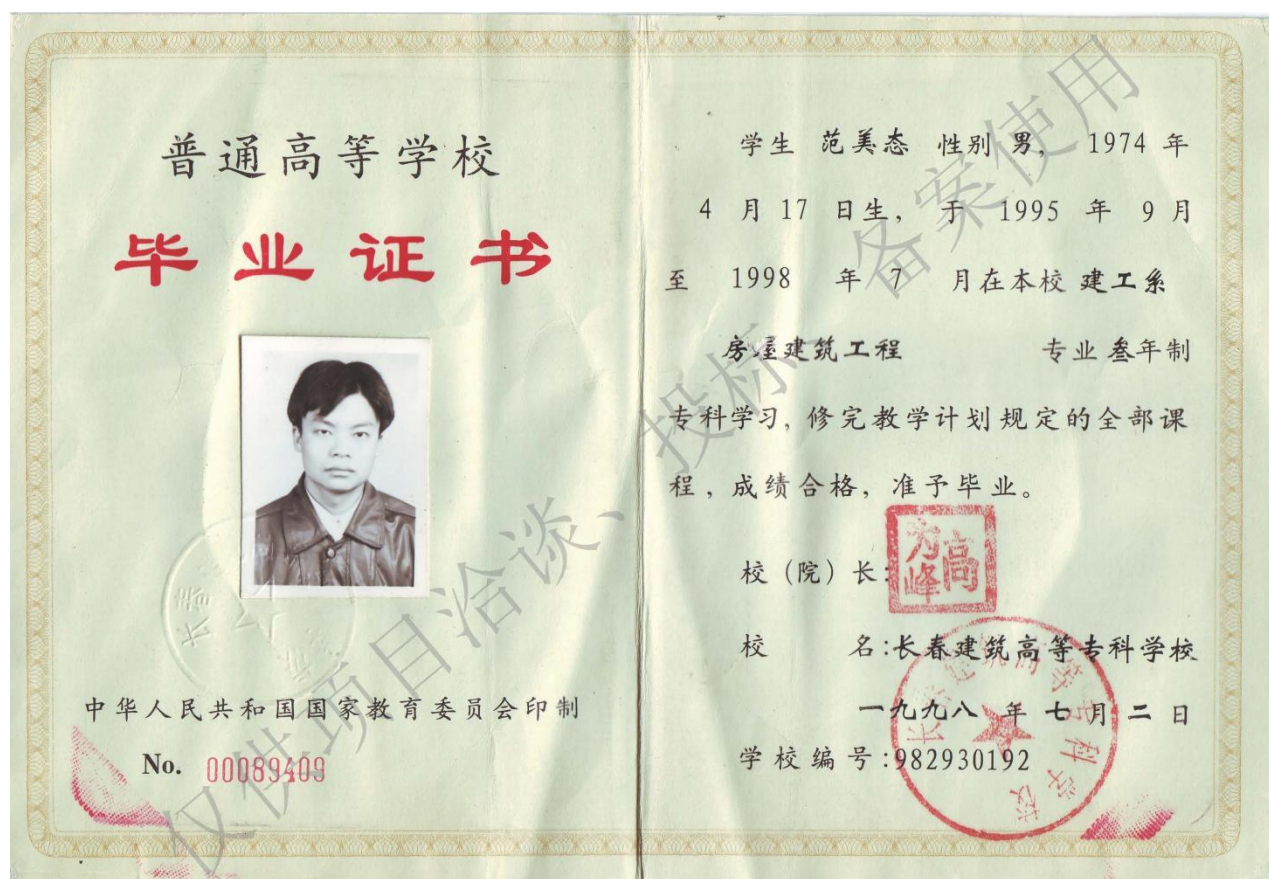 普通高等学校
毕业证书
中华人民共和国国家教育委员会印制
No. 00089409
学生 范美态 性别 男, 1974 年
4 月 17 日生, 于 1995 年 9 月
至 1998 年 7 月在本校 建工系
房屋建筑工程 专业 叁年制
专科学习, 修完教学计划规定的全部课
程, 成绩合格, 准予毕业。
校(院)长:
高为峰
校 名:长春建筑高等专科学校
一九九八 年 七 月 二 日
学校编号:982930192
长春建筑高等专科学校
仅供项目洽谈、投标、备案使用